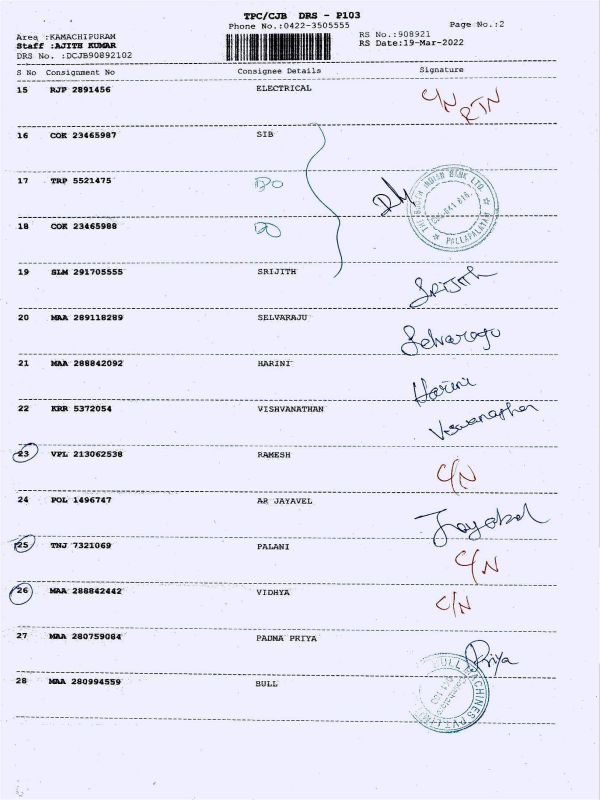 TPC/CJB DRS - P103
Phone No.:0422-3505555
Page No.:2
Area :KAMACHIPURAM
RS No.:908921
Staff :AJITH KUMAR
RS Date:19-Mar-2022
DRS No. :DCJB90892102
S No Consignment No Consignee Details Signature
15 RJP 2891456 ELECTRICAL C/N RTN
16 COK 23465987 SIB
17 TRP 5521475 DO
18 COK 23465988 DO
THE SOUTH INDIAN BANK LTD.
PALLAPALAYAM
19 SLM 291705555 SRIJITH Srijith
20 MAA 289118289 SELVARAJU Selvaraju
21 MAA 288842092 HARINI Harini
22 KRR 5372054 VISHVANATHAN
23 VPL 213062538 RAMESH C/N
24 POL 1496747 AR JAYAVEL
25 TNJ 7321069 PALANI C/N
26 MAA 288842442 VIDHYA C/N
27 MAA 280759084 PADMA PRIYA Priya
28 MAA 280994559 BULL
BULL MACHINES PVT LTD